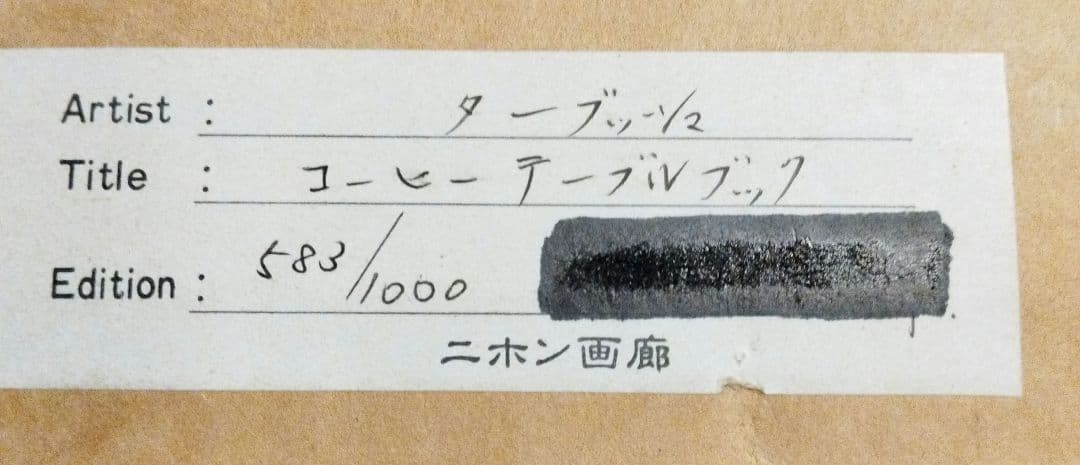 Artist : ターブッシュ
Title : コーヒーテーブルブック
Edition : 583/1000
ニホン画廊